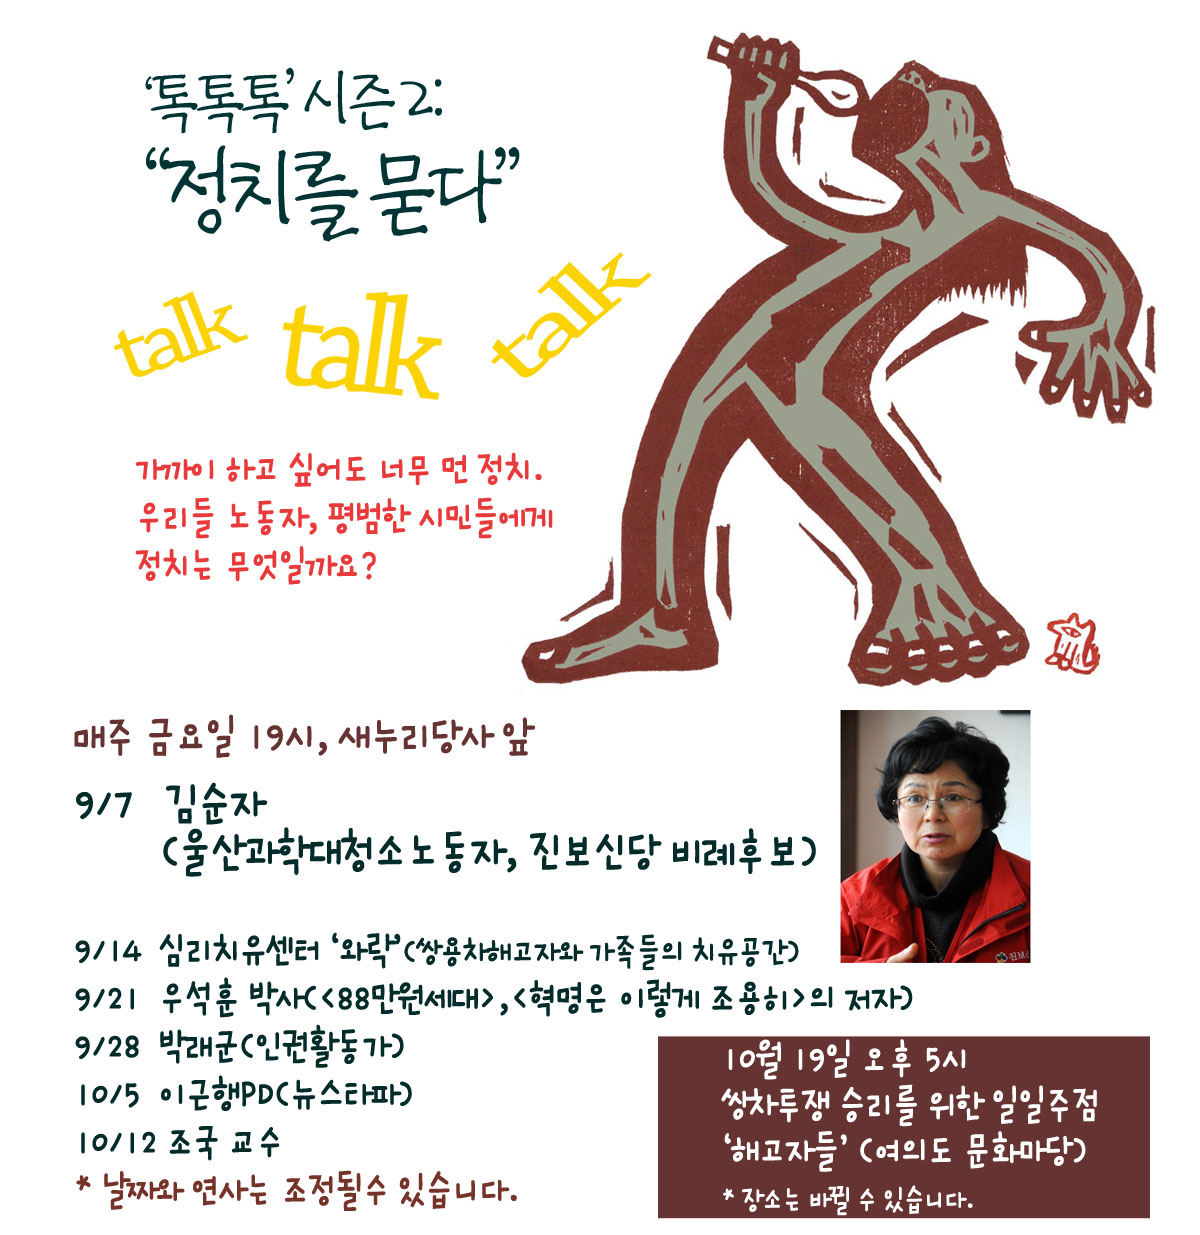 ‘톡톡톡’ 시즌 2:
“정치를 묻다”
talk talk talk
가까이 하고 싶어도 너무 먼 정치.
우리들 노동자, 평범한 시민들에게
정치는 무엇일까요?
매주 금요일 19시, 새누리당사 앞
9/7 김순자
(울산과학대청소노동자, 진보신당 비례후보)
9/14 심리치유센터 ‘와락’(쌍용차해고자와 가족들의 치유공간)
9/21 우석훈 박사(<88만원세대>,<혁명은 이렇게 조용히>의 저자)
9/28 박래군(인권활동가)
10/5 이근행PD(뉴스타파)
10/12 조국 교수
* 날짜와 연사는 조정될수 있습니다.
진보
10월 19일 오후 5시
쌍차투쟁 승리를 위한 일일주점
‘해고자들’ (여의도 문화마당)
* 장소는 바뀔 수 있습니다.